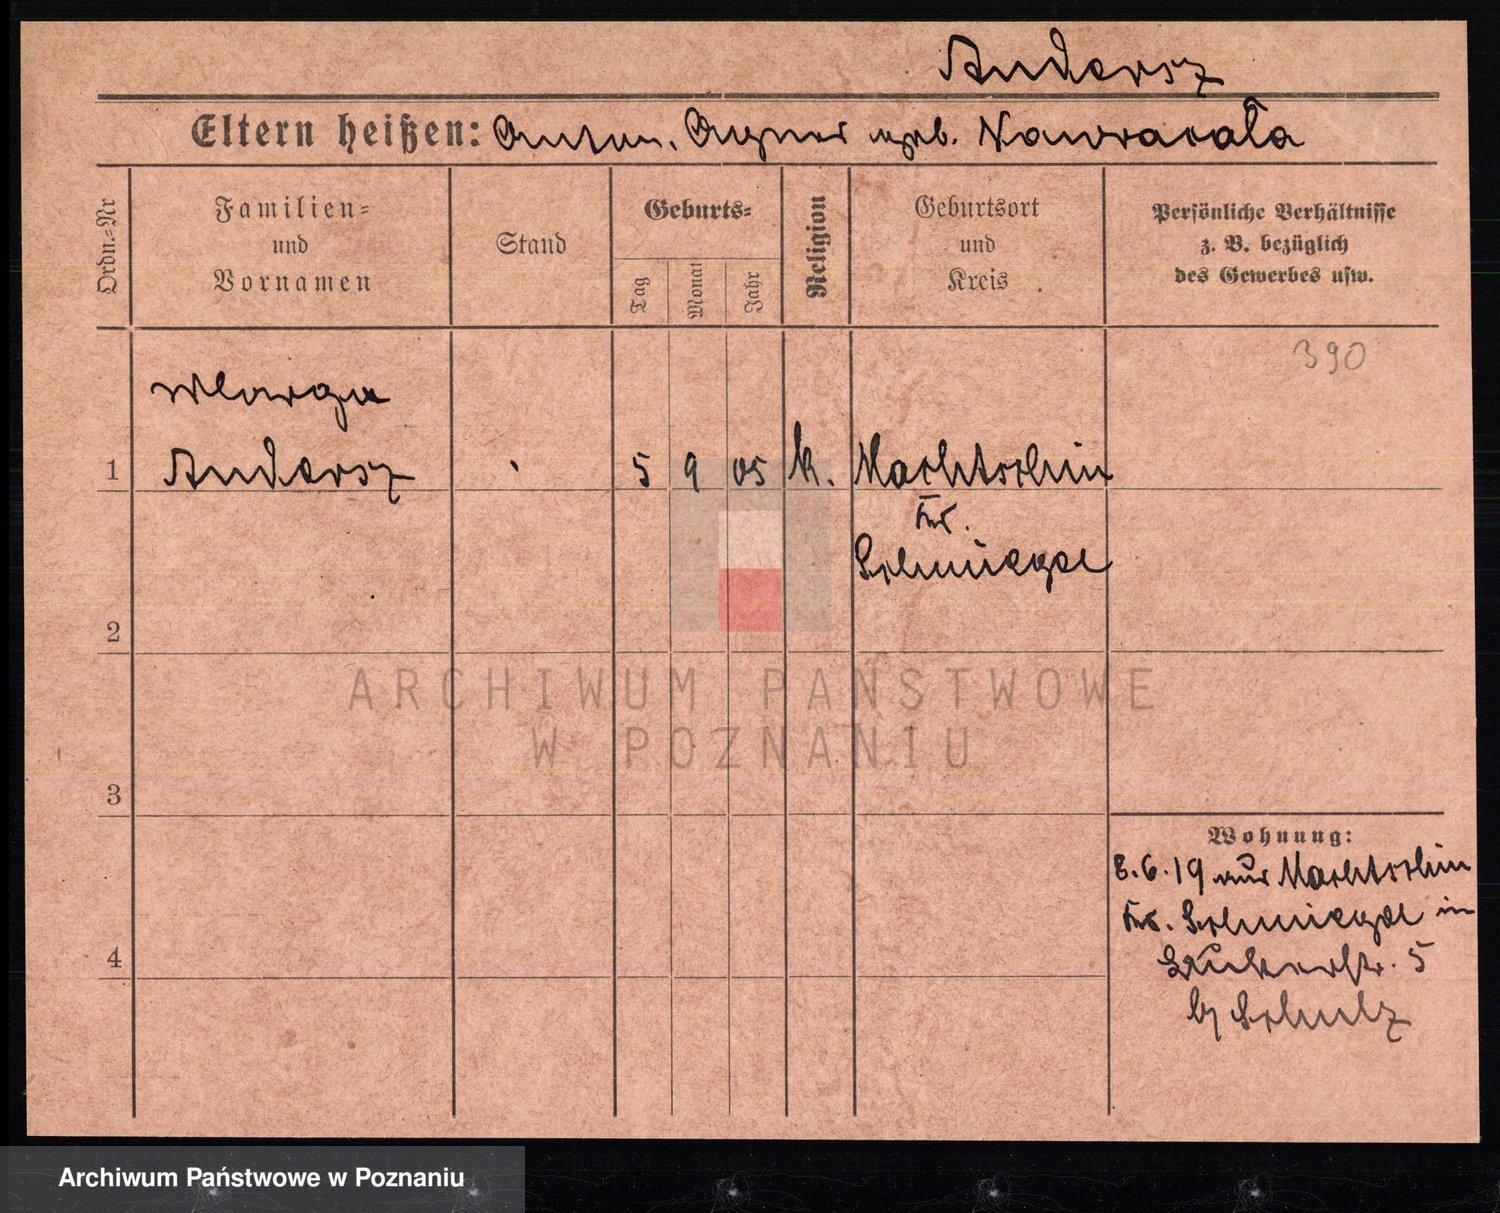 Andersz
Eltern heißen: Anton. Agnes geb. Nawracala
Ordn.=Nr
Familien=
und
Vornamen
Stand
Geburts=
Tag
Monat
Jahr
Religion
Geburtsort
und
Kreis
Persönliche Verhältnisse
z. B. bezüglich
des Gewerbes usw.
390
Marga
1 Andersz 5 9 05 k. Machtschin
Kr.
Schmiegel
2
3
4
Wohnung:
8.6.19 aus Machtschin
Kr. Schmiegel in
5
b/ Schulz
ARCHIWUM PAŃSTWOWE
W POZNANIU
Archiwum Państwowe w Poznaniu